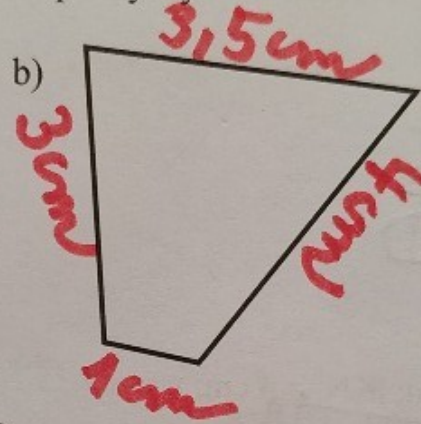 3,5cm
b)
3cm
4cm
1cm